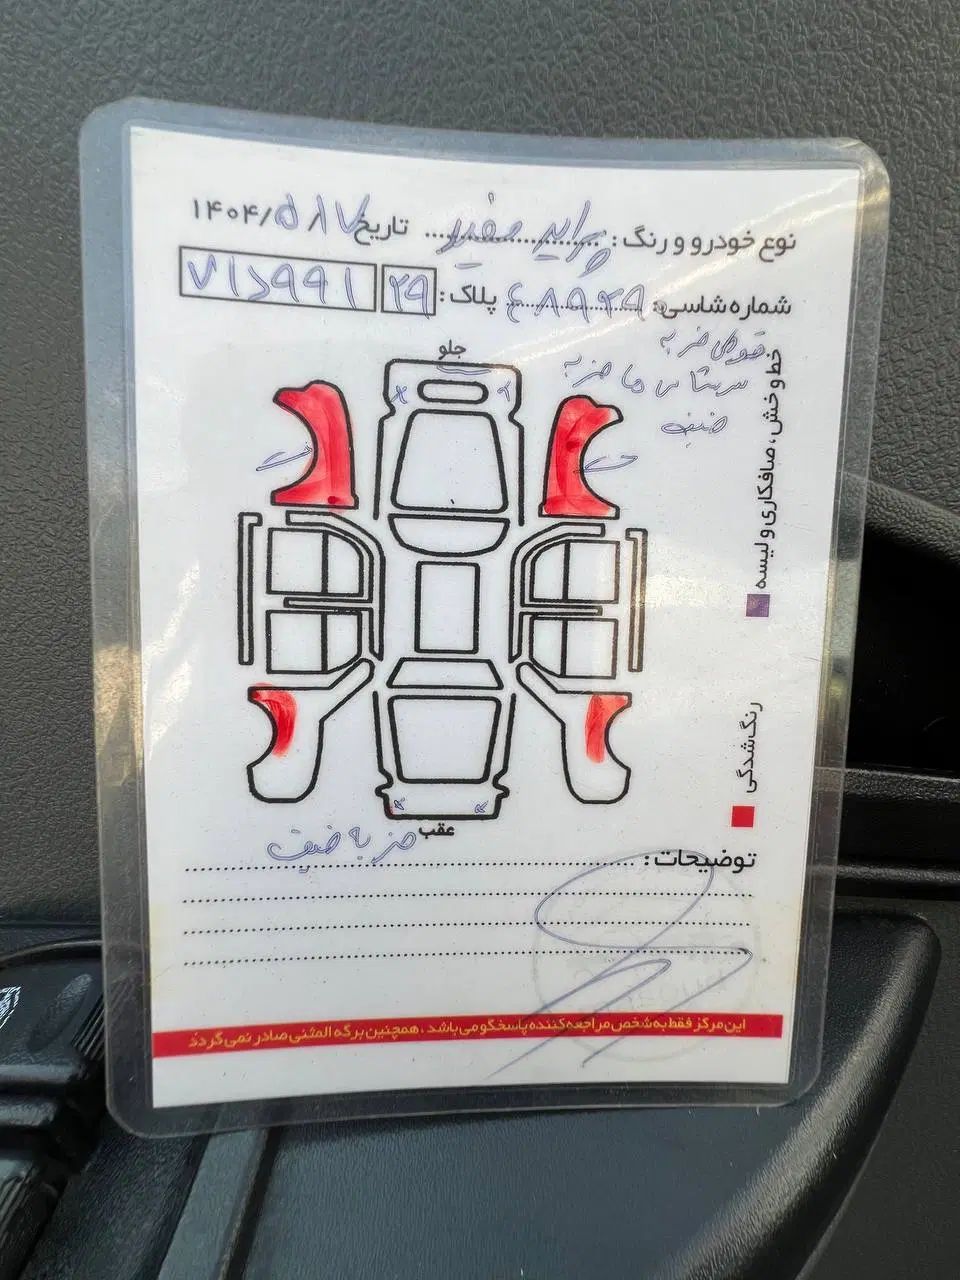 نوع خودرو و رنگ : پراید سفید تاریخ ۱۴۰۴/۵/۷
شماره شاسی: ۶۸۹۲۹ پلاک : ۲۹ ۷۱د۹۹۱
جلو
ضربه
سرشاسی ها ضربه
ضعیف
خط و خش ، صافکاری و لیسه
ت
ت
رنگ شدگی
عقب
توضیحات : ضربه ضعیف
این مرکز فقط به شخص مراجعه کننده پاسخگو می باشد ، همچنین برگه المثنی صادر نمی گردد